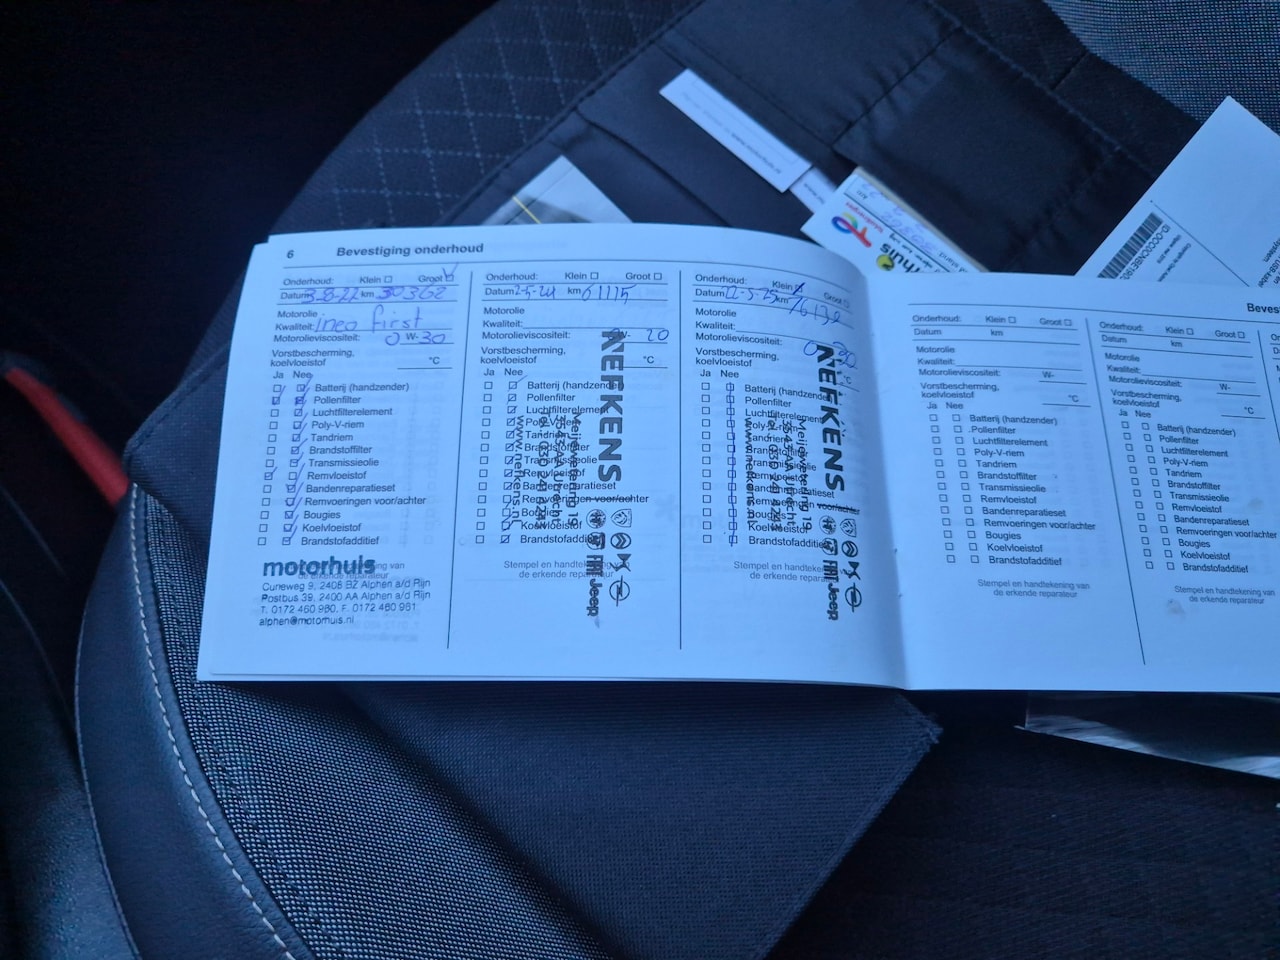 6 Bevestiging onderhoud
Onderhoud: Klein ☐ Groot ☑
Datum 3-8-22 km 30362
Motorolie
Kwaliteit: ineo first
Motorolieviscositeit: 0 W- 30
Vorstbescherming,
koelvloeistof °C
Ja Nee
Batterij (handzender)
Pollenfilter
Luchtfilterelement
Poly-V-riem
Tandriem
Brandstoffilter
Transmissieolie
Remvloeistof
Bandenreparatieset
Remvoeringen voor/achter
Bougies
Koelvloeistof
Brandstofadditief
motorhuis
Curieweg 9, 2408 BZ Alphen a/d Rijn
Postbus 39, 2400 AA Alphen a/d Rijn
T. 0172 460 960, F. 0172 460 961
alphen@motorhuis.nl
Onderhoud: Klein ☐ Groot ☐
Datum 2-5-24 km 61115
Motorolie
Kwaliteit:
Motorolieviscositeit: W- 20
Vorstbescherming,
koelvloeistof °C
Ja Nee
Batterij (handzender)
Pollenfilter
Luchtfilterelement
Poly-V-riem
Tandriem
Brandstoffilter
Transmissieolie
Remvloeistof
Bandenreparatieset
Remvoeringen voor/achter
Bougies
Koelvloeistof
Brandstofadditief
Stempel en handtekening van
de erkende reparateur
NEFKENS
www.nefkens.nl
FIAT Jeep
Onderhoud: Klein ☑ Groot ☐
Datum 22-5-25 km
Motorolie
Kwaliteit:
Motorolieviscositeit: 0 30
Vorstbescherming,
koelvloeistof °C
Ja Nee
Batterij (handzender)
Pollenfilter
Luchtfilterelement
Poly-V-riem
Tandriem
Brandstoffilter
Transmissieolie
Remvloeistof
Bandenreparatieset
Remvoeringen voor/achter
Bougies
Koelvloeistof
Brandstofadditief
Stempel en handtekening van
de erkende reparateur
NEFKENS
www.nefkens.nl
FIAT Jeep
Onderhoud: Klein ☐ Groot ☐
Datum km
Motorolie
Kwaliteit:
Motorolieviscositeit: W-
Vorstbescherming,
koelvloeistof °C
Ja Nee
Batterij (handzender)
Pollenfilter
Luchtfilterelement
Poly-V-riem
Tandriem
Brandstoffilter
Transmissieolie
Remvloeistof
Bandenreparatieset
Remvoeringen voor/achter
Bougies
Koelvloeistof
Brandstofadditief
Stempel en handtekening van
de erkende reparateur
Onderhoud: Klein ☐ Groot ☐
Datum km
Motorolie
Kwaliteit:
Motorolieviscositeit: W-
Vorstbescherming,
koelvloeistof °C
Ja Nee
Batterij (handzender)
Pollenfilter
Luchtfilterelement
Poly-V-riem
Tandriem
Brandstoffilter
Transmissieolie
Remvloeistof
Bandenreparatieset
Remvoeringen voor/achter
Bougies
Koelvloeistof
Brandstofadditief
Stempel en handtekening van
de erkende reparateur